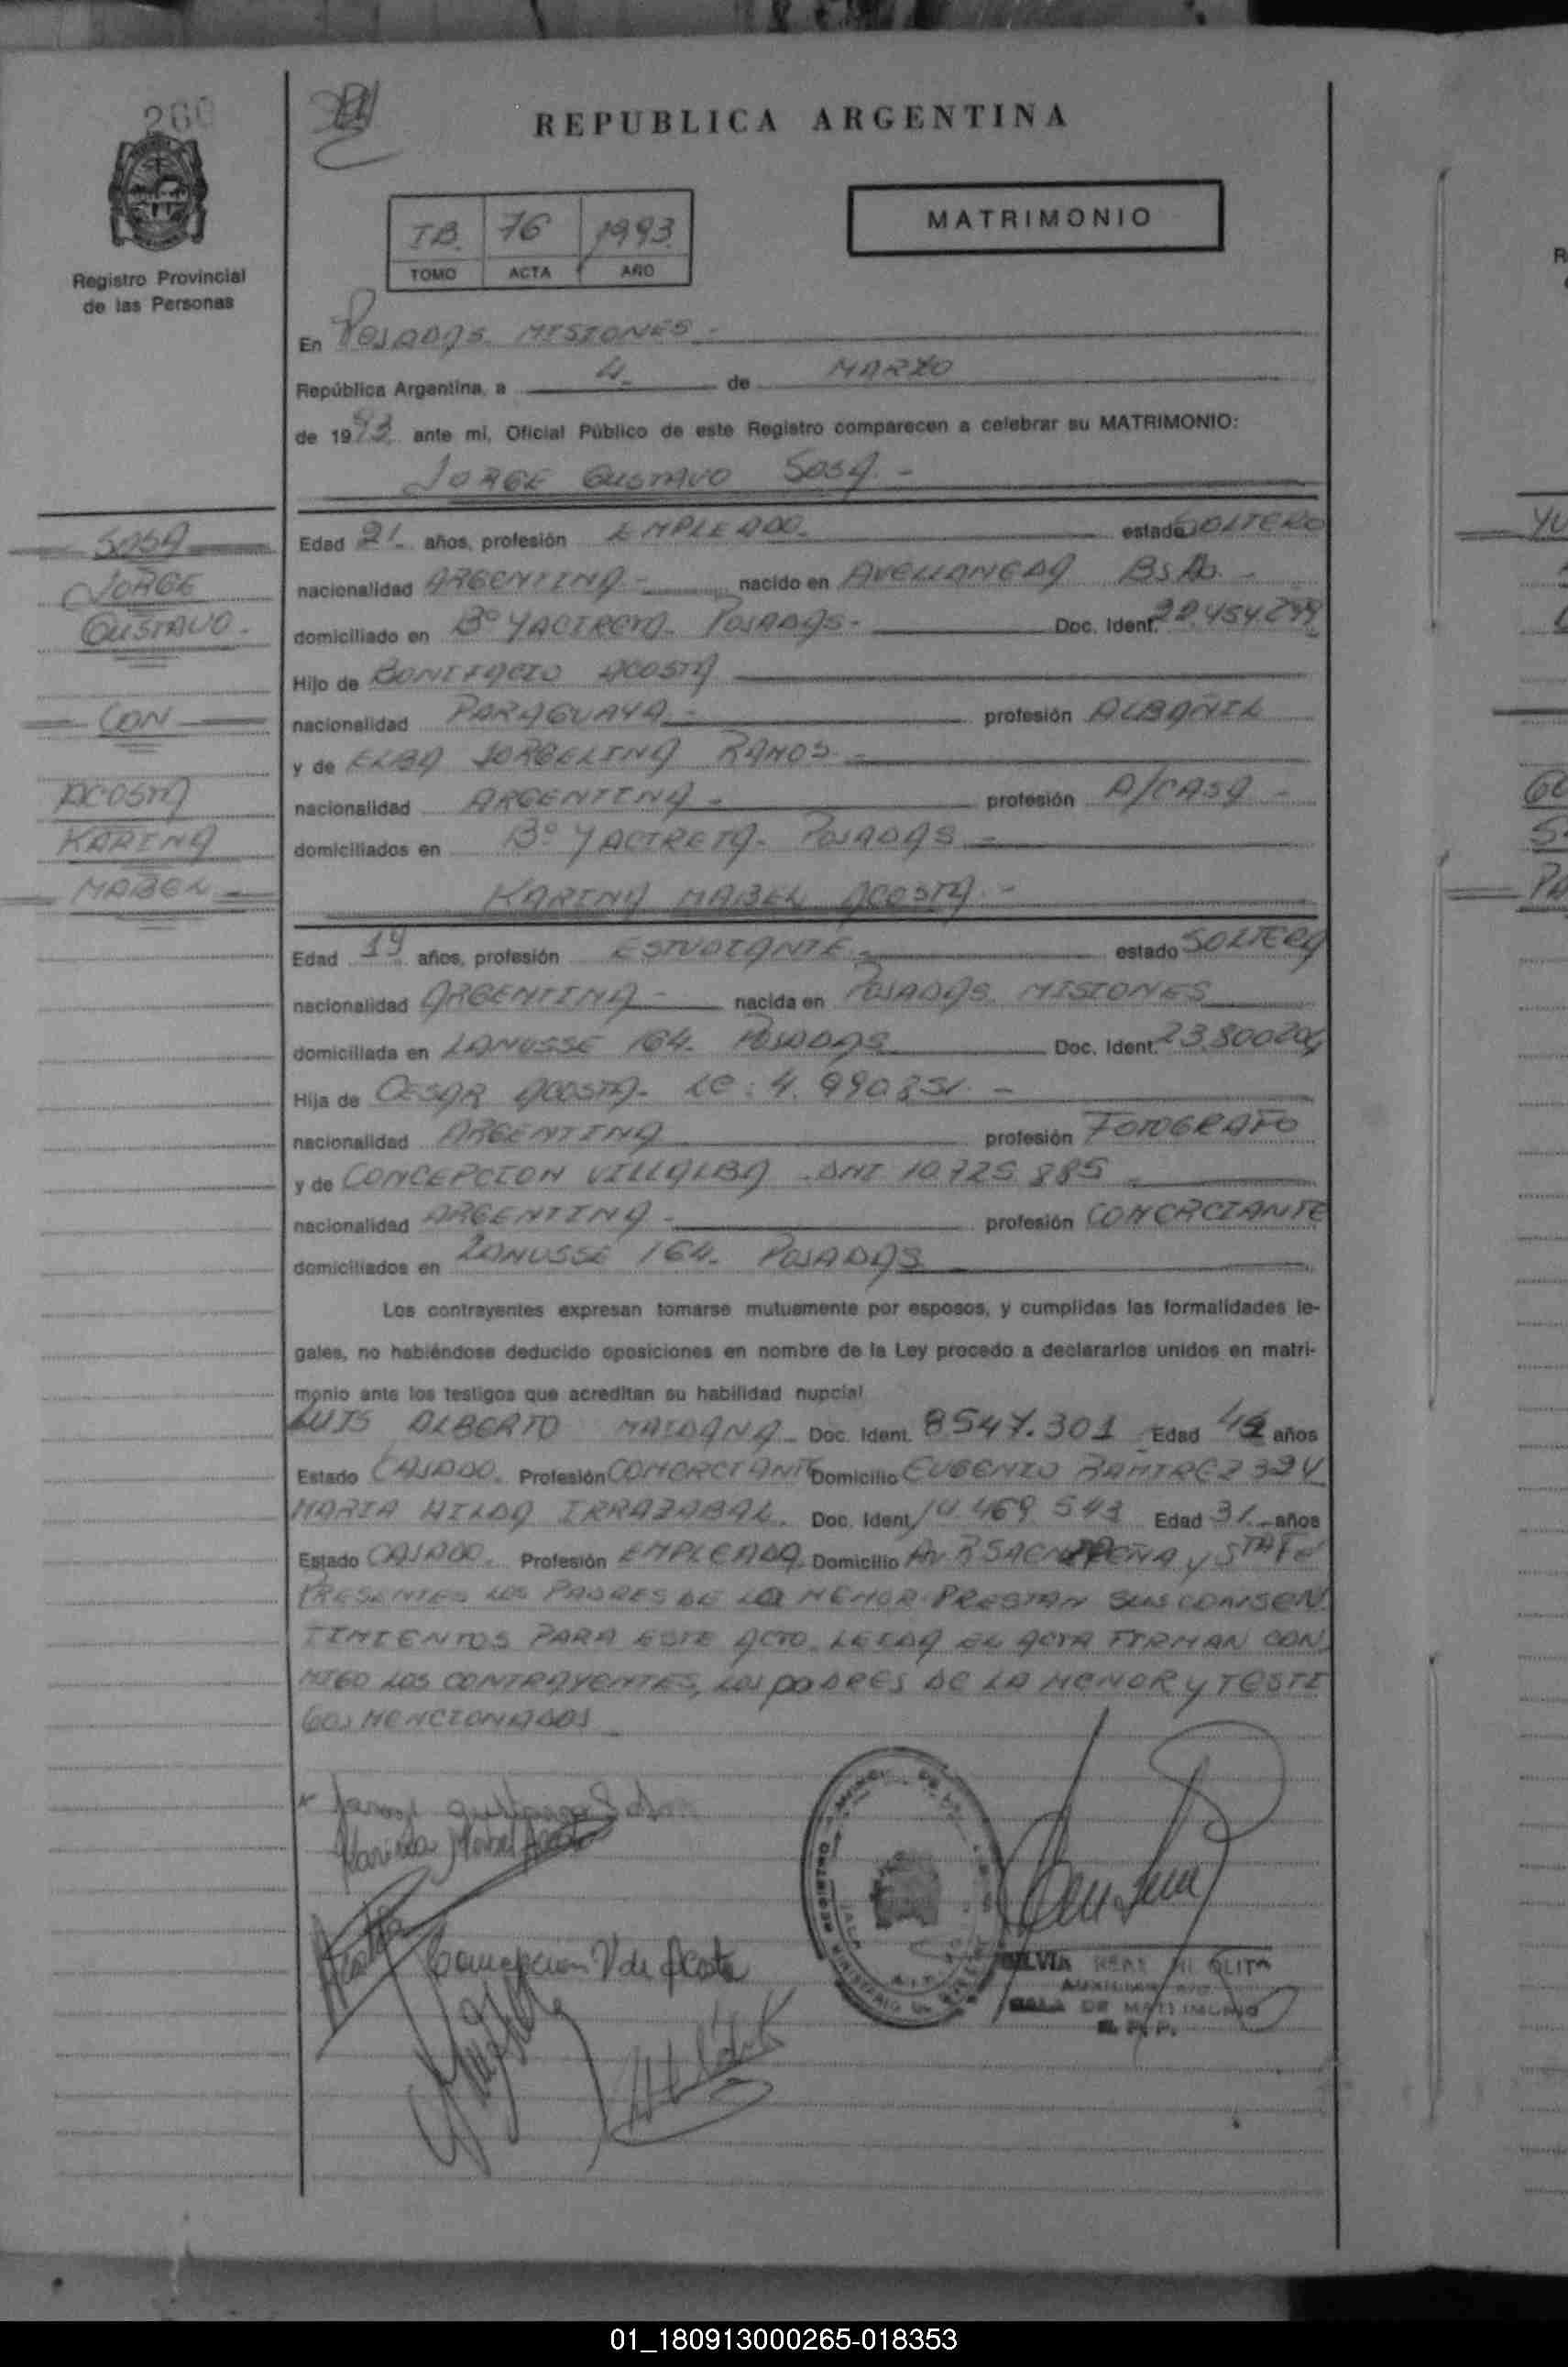 200
REPUBLICA ARGENTINA
MATRIMONIO
76 1993
TOMO ACTA AÑO
Registro Provincial
de las Personas
En POSADAS MISIONES.-
República Argentina, a 4 de MARZO
de 1993 ante mi, Oficial Público de este Registro comparecen a celebrar su MATRIMONIO:
JORGE GUSTAVO SOSA.-
SOSA
JORGE
GUSTAVO.-
CON
ACOSTA
KARINA
MABEL
Edad 21 años, profesión EMPLEADO.- estado SOLTERO
nacionalidad ARGENTINA- nacido en AVELLANEDA Bs.As.-
domiciliado en B° YACIRETA- POSADAS- Doc. Ident. 22.454.
Hijo de BONIFACIO ACOSTA
nacionalidad PARAGUAYA- profesión ALBAÑIL
y de ELBA JORGELINA RAMOS-
nacionalidad ARGENTINA- profesión A/CASA-
domiciliados en B° YACIRETA- POSADAS-
KARINA MABEL ACOSTA.-
Edad 19 años, profesión ESTUDIANTE- estado SOLTERA
nacionalidad ARGENTINA- nacida en POSADAS MISIONES
domiciliada en LANUSSE 164- POSADAS Doc. Ident. 23.800
Hija de CESAR ACOSTA- LE: 4.990.851.-
nacionalidad ARGENTINA profesión FOTOGRAFO
y de CONCEPCION VILLALBA -DNI 10.725.885
nacionalidad ARGENTINA- profesión COMERCIANTE
domiciliados en LANUSSE 164- POSADAS
Los contrayentes expresan tomarse mutuamente por esposos, y cumplidas las formalidades le-
gales, no habiéndose deducido oposiciones en nombre de la Ley procedo a declararlos unidos en matri-
monio ante los testigos que acreditan su habilidad nupcial
LUIS ALBERTO MAIDANA- Doc. Ident. 8547.301 Edad años
Estado CASADO. Profesión COMERCIANTE Domicilio EUGENIO RAMIREZ 324
MARIA HILDA IRRAZABAL. Doc. Ident. 14.469.543 Edad 31 años
Estado CASADO. Profesión EMPLEADA Domicilio Av. R SAENZ PEÑA y STA FE
PRESENTES LOS PADRES DE LA MENOR PRESTAN SUS CONSEN
TIMIENTOS PARA ESTE ACTO. LEIDA EL ACTA FIRMAN CON
MIGO LOS CONTRAYENTES, LOS PADRES DE LA MENOR y TESTI
GOS MENCIONADOS
Karina Mabel Acosta
Concepcion V de Acosta
SILVIA
SALA DE MATRIMONIO
R. P. P.
01_180913000265-018353